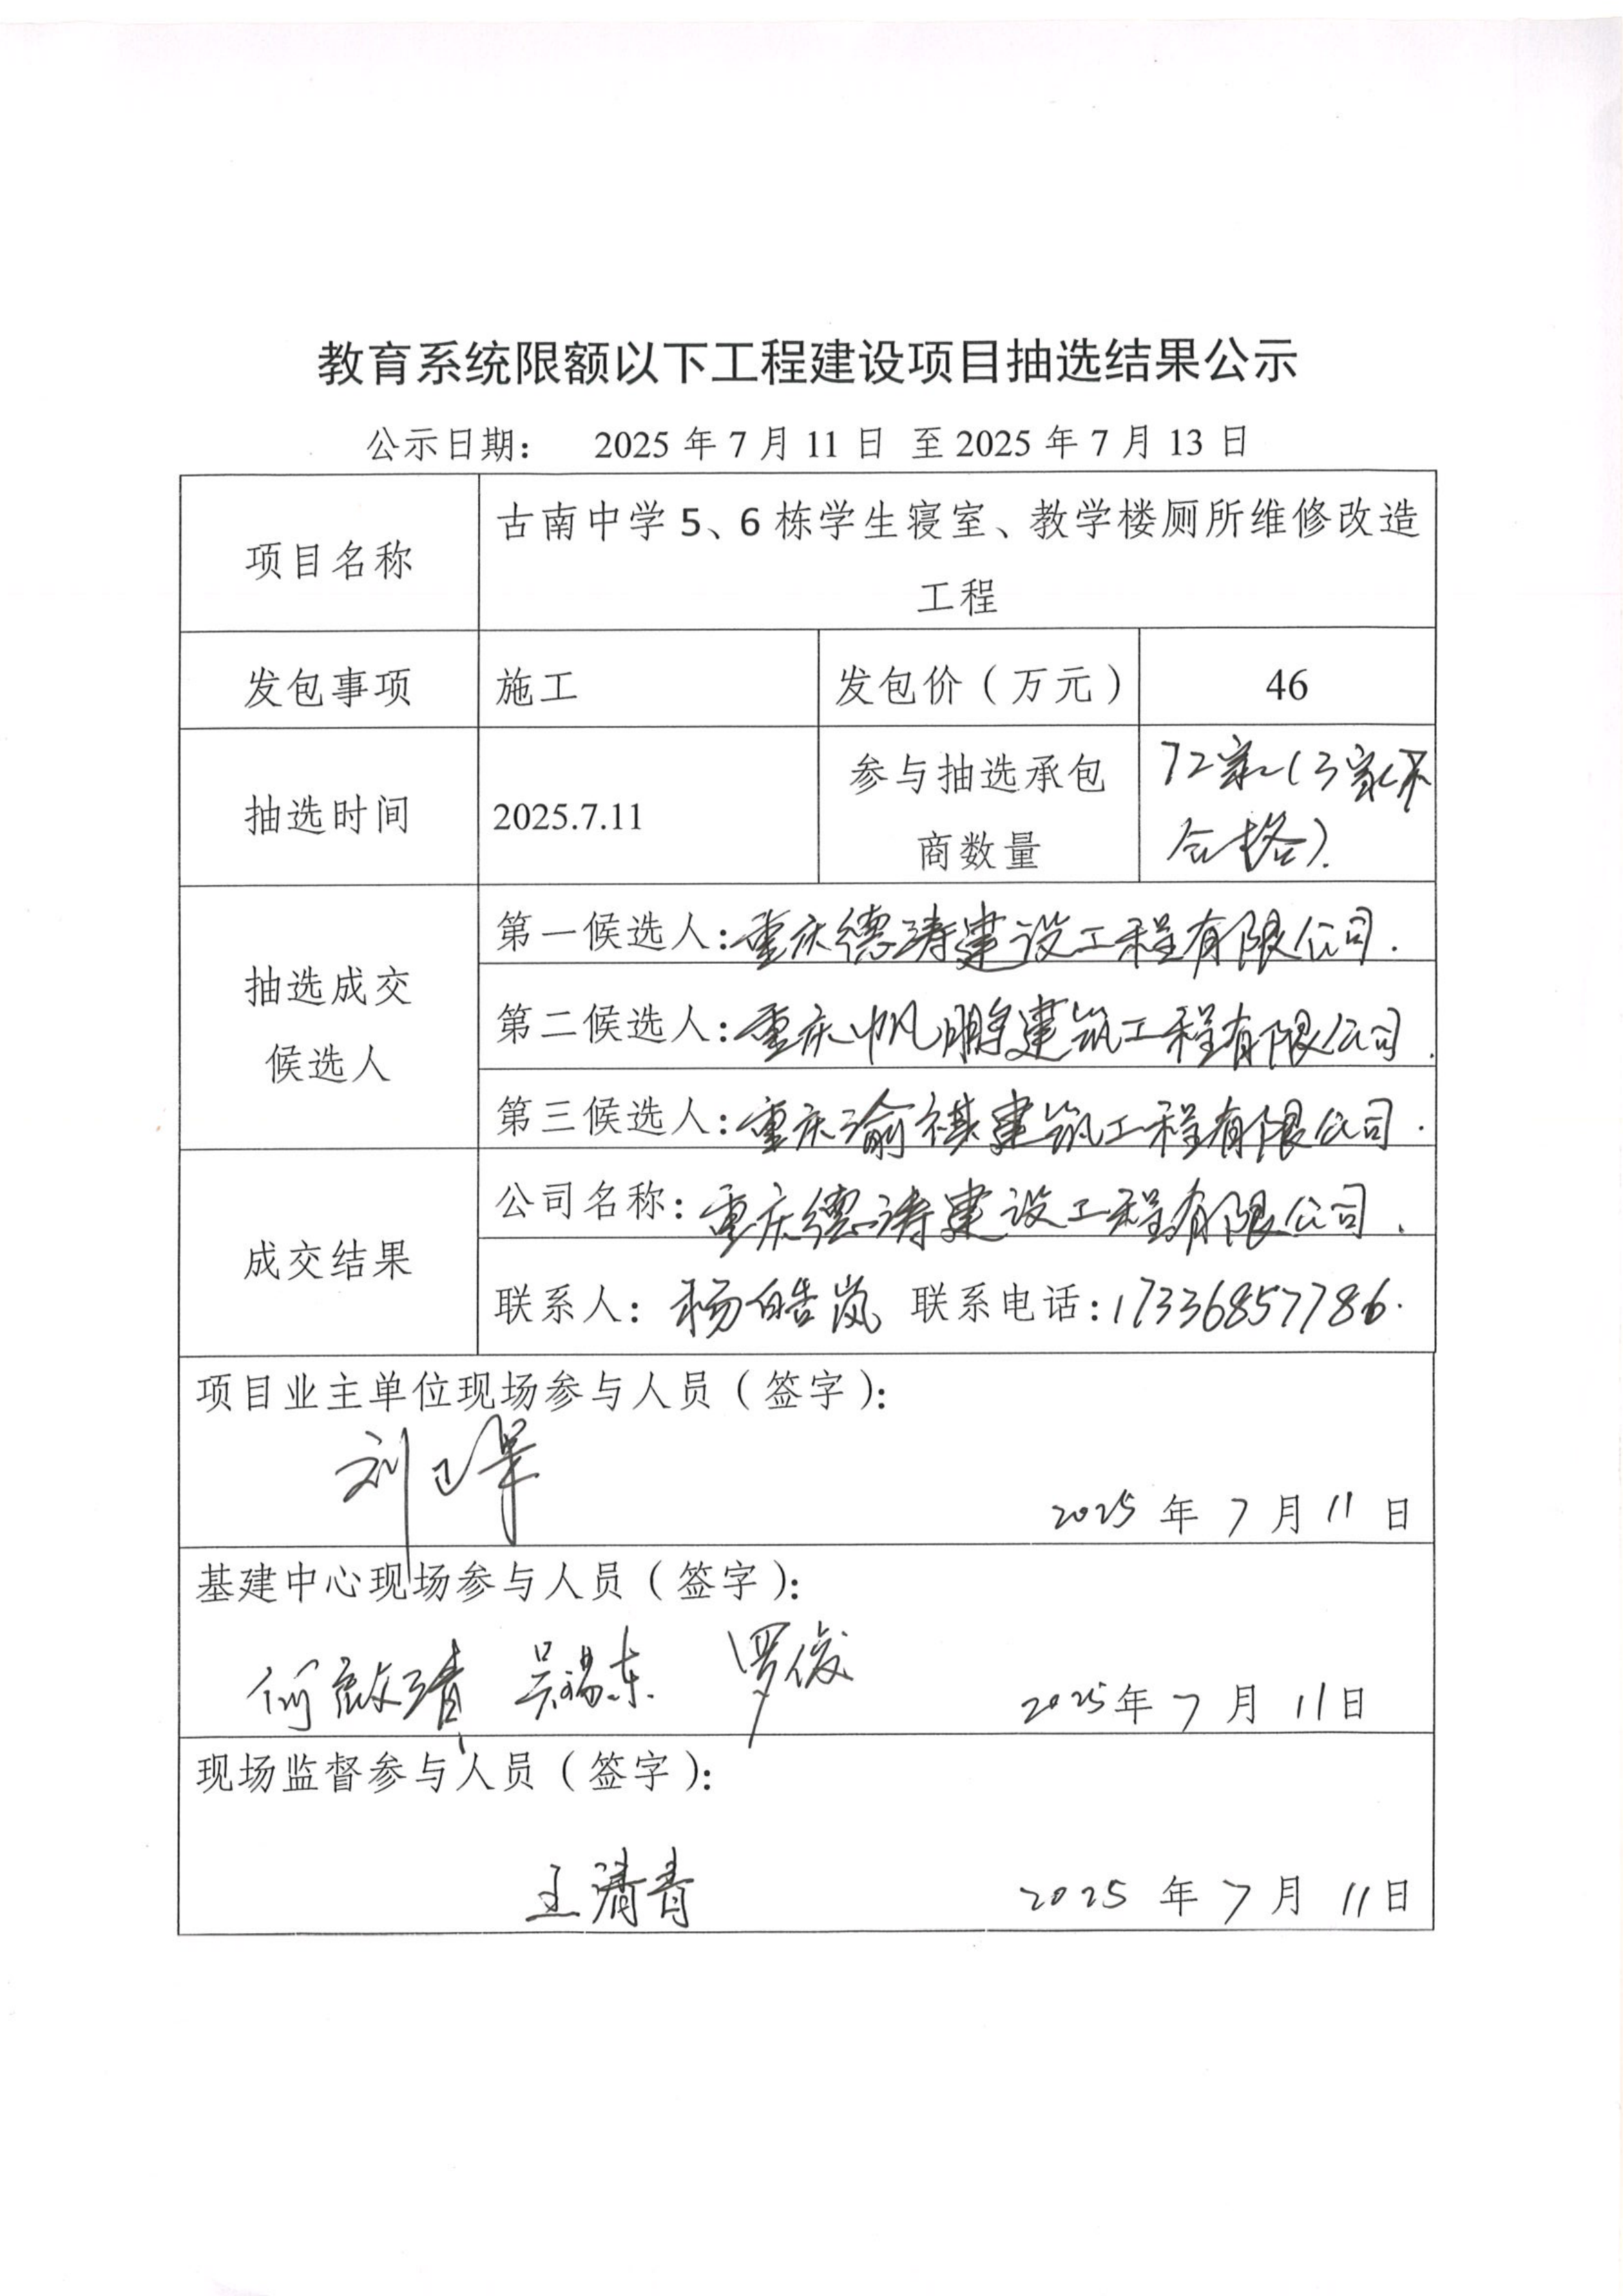 教育系统限额以下工程建设项目抽选结果公示
公示日期： 2025 年 7 月 11 日 至 2025 年 7 月 13 日
项目名称
古南中学 5、6 栋学生寝室、教学楼厕所维修改造
工程
发包事项
施工
发包价（万元）
46
抽选时间
2025.7.11
参与抽选承包
商数量
72家（3家不
合格）.
抽选成交
候选人
第一候选人：重庆德涛建设工程有限公司.
第二候选人：重庆帆鹏建筑工程有限公司.
第三候选人：重庆渝祺建筑工程有限公司.
成交结果
公司名称：重庆德涛建设工程有限公司.
联系人：杨皓岚 联系电话：17336857786.
项目业主单位现场参与人员（签字）：
刘
2025 年 7 月 11 日
基建中心现场参与人员（签字）：
何 吴锡东 罗俊
2025年 7 月 11日
现场监督参与人员（签字）：
王清青
2025 年 7 月 11日